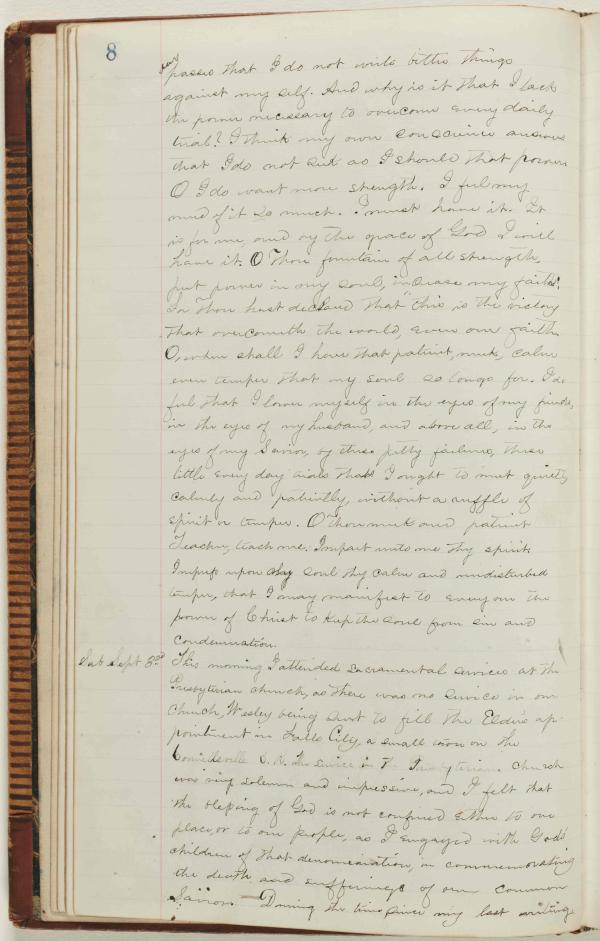 8
passes that I do not write bitter things
against my self. And why is it that I lack
the power necessary to overcome every daily
trial? I think my own conscience answers
that I do not seek as I should that power.
O I do want more strength. I feel my
need of it so much. I must have it. It
is for me, and by the grace of God I will
have it. O Thou fountain of all strength,
put power in my soul, increase my faith.
For Thou hast declared that "this is the victory
that overcometh the world, even our faith
O, when shall I have that patient, meek, calm
even temper that my soul so longs for. I do
feel that I lower myself in the eyes of my friends,
in the eyes of my husband, and above all, in the
eyes of my Savior, by these petty failures, these
little every day trials that I ought to meet quietly
calmly and patiently, without a ruffle of
spirit or temper. O Thou meek and patient
Teacher, teach me. Impart unto me thy spirit.
Impress upon my soul thy calm and undisturbed
temper, that I may manifest to every one the
power of Christ to keep the soul from sin and
condemnation.
Sab Sept 3rd This morning I attended sacramental services at the
Presbyterian church, as there was no service in our
church, Wesley being sent to fill the Elder's ap-
pointment in Falls City, a small town on the
The service in the Presbyterian church
was very solemn and impressive, and I felt that
the blessing of God is not confined either to one
place, or to one people, as I engaged with God's
children of that denomination, in commemorating
the death and sufferings of our common
Savior. — During the time since my last writing